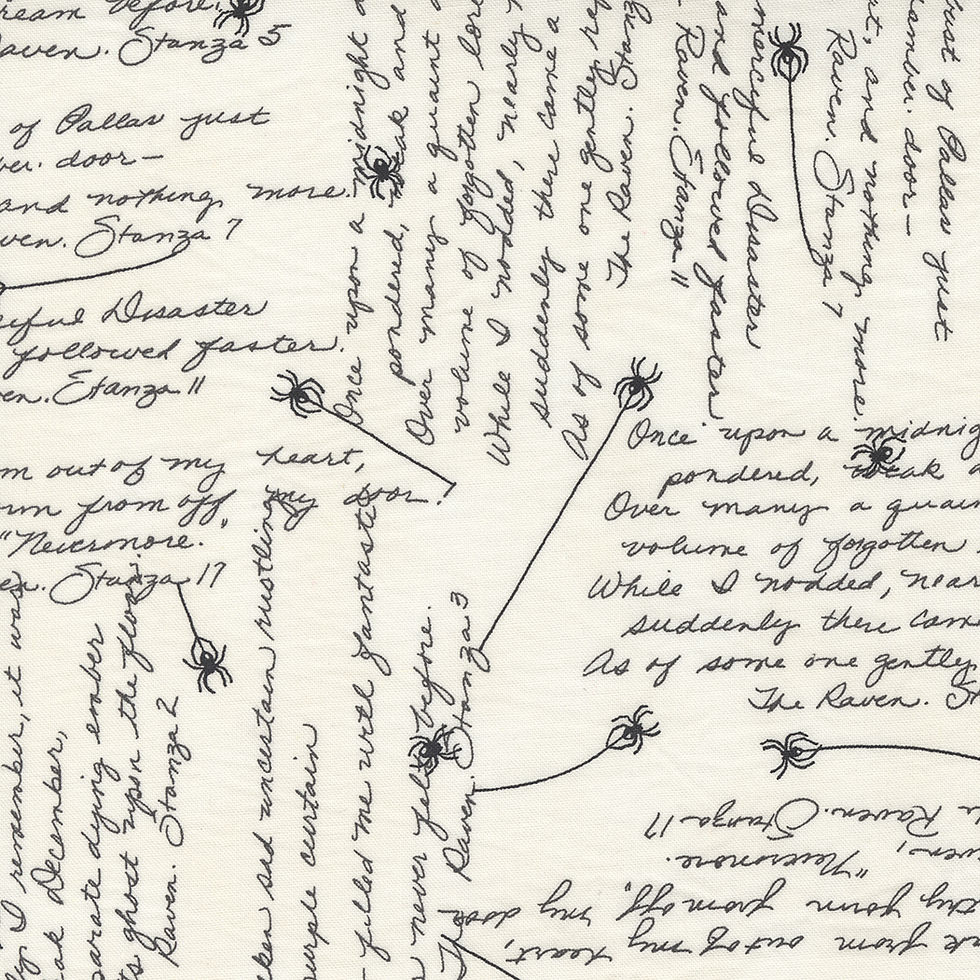 ream before.
aven. Stanza 5
of Pallas just
door—
and nothing more.
ven. Stanza 7
Disaster
followed faster
en. Stanza 11
m out of my heart,
from off my door!
"Nevermore."
en. Stanza 17
Once upon a midnight
pondered, weak and
Over many a quaint
volume of forgotten lore
While I nodded, nearly
suddenly there came a
As of some one gently
The Raven. Stanza
merciful Disaster
and followed faster
Raven. Stanza 11
bust of Pallas just
door—
and nothing more.
Raven. Stanza 7
Once upon a midnig
pondered, weak
Over many a quain
volume of forgotten
While I nodded, near
suddenly there cam
As of some one gently
The Raven. St
I remember, it was
December,
arate dying ember
ghost upon the floor.
Raven. Stanza 2
ken sad uncertain rustling
urple curtain
filled me with fantastic
never felt before.
The Raven. Stanza 3
from out of my heart,
form from off my door
"Nevermore.
Raven. Stanza 17